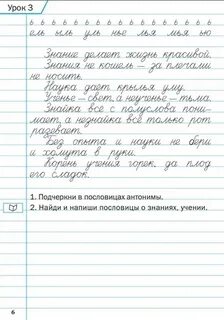 Урок 3
ь ь ь ь ь ь ь ь ь ь ь ь ь ь ь
ель ыль уль нье лья мья ью
Знание делает жизнь красивой.
Знания не кошель — за плечами
не носить.
Наука дает крылья уму.
Ученье — свет, а неученье — тьма.
Знайка всё с полуслова пони-
мает, а незнайка всё только рот
разевает.
Без опыта и науки не бери
и хомута в руки.
Корень учения горек, да плод
его сладок.
1. Подчеркни в пословицах антонимы.
2. Найди и напиши пословицы о знаниях, учении.
6